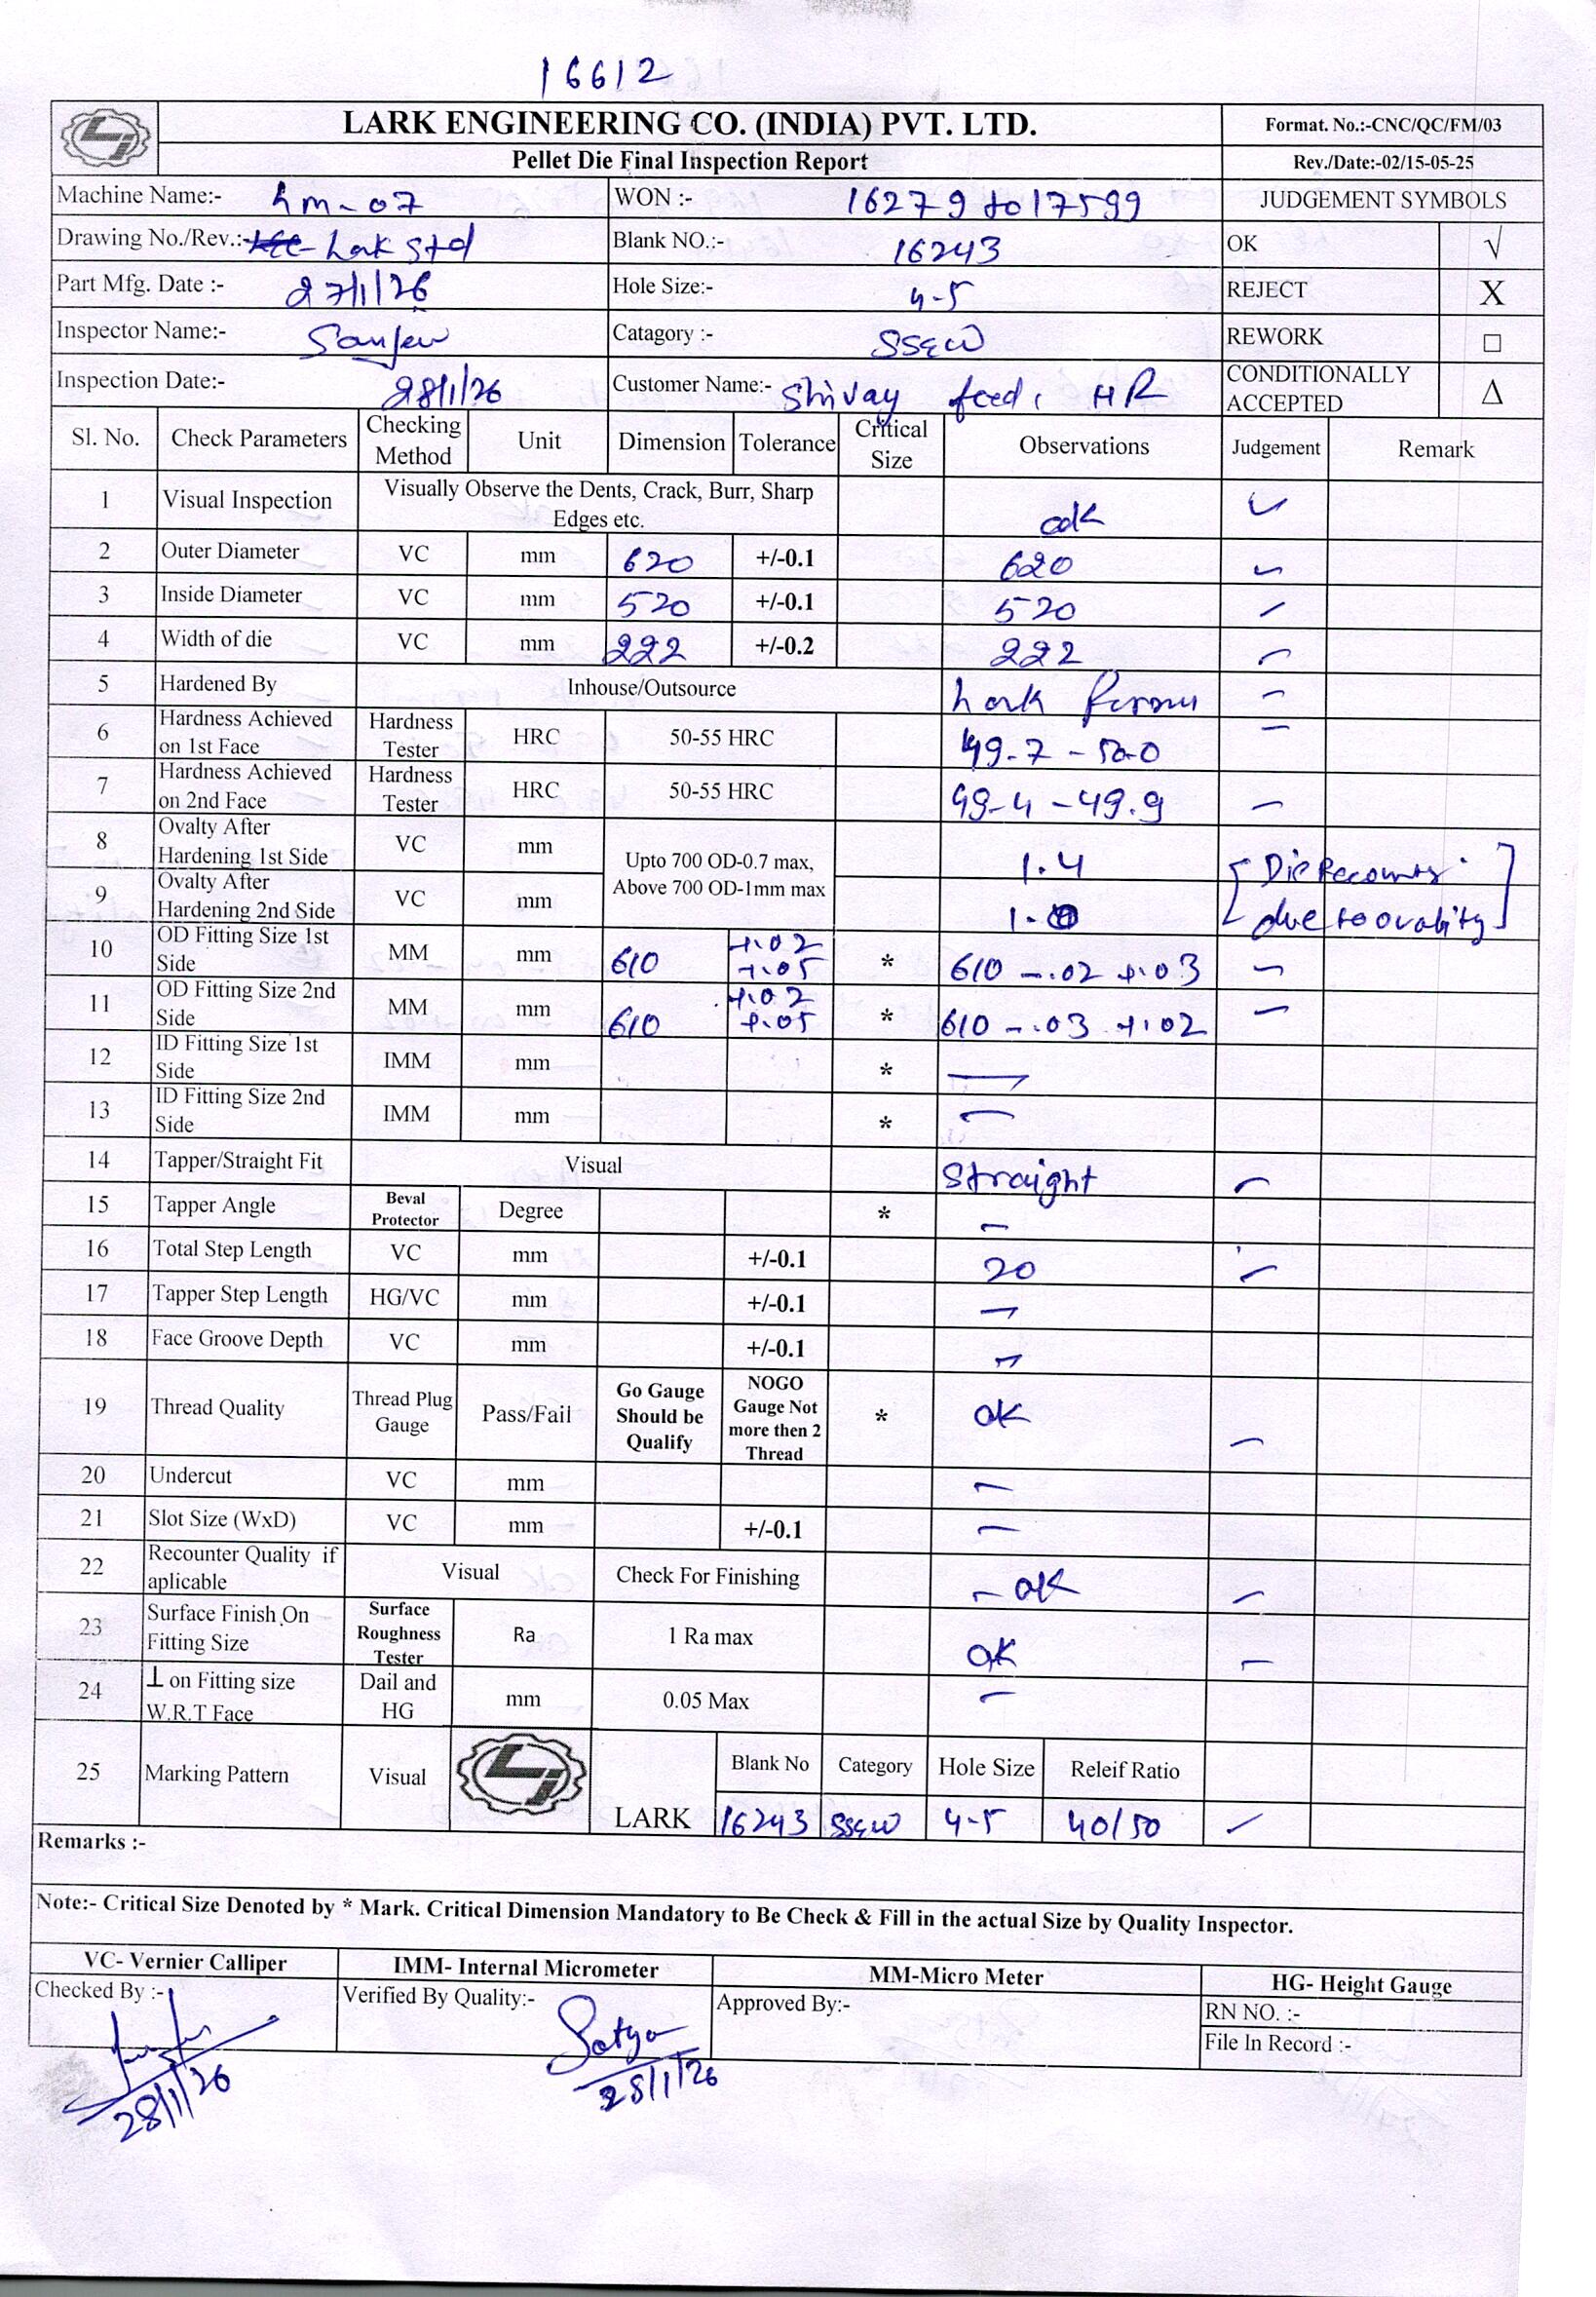 16612
LARK ENGINEERING CO. (INDIA) PVT. LTD.
Format. No.:-CNC/QC/FM/03
Pellet Die Final Inspection Report
Rev./Date:-02/15-05-25
Machine Name:- hm-07 WON :- 16279 to 17599 JUDGEMENT SYMBOLS
Drawing No./Rev.:- Lark Std Blank NO.:- 16243 OK √
Part Mfg. Date :- 27/1/26 Hole Size:- 4-5 REJECT X
Inspector Name:- Sanjeev Catagory :- SS&W REWORK □
Inspection Date:- 28/1/26 Customer Name:- Shivay feed, HR CONDITIONALLY ACCEPTED Δ
Sl. No. Check Parameters Checking Method Unit Dimension Tolerance Critical Size Observations Judgement Remark
1 Visual Inspection Visually Observe the Dents, Crack, Burr, Sharp Edges etc. ok
2 Outer Diameter VC mm 620 +/-0.1 620
3 Inside Diameter VC mm 520 +/-0.1 520
4 Width of die VC mm 222 +/-0.2 222
5 Hardened By Inhouse/Outsource Lark
6 Hardness Achieved on 1st Face Hardness Tester HRC 50-55 HRC 49-7 - 50-0
7 Hardness Achieved on 2nd Face Hardness Tester HRC 50-55 HRC 49-4 - 49.9
8 Ovalty After Hardening 1st Side VC mm Upto 700 OD-0.7 max, Above 700 OD-1mm max 1.4 [Die Recounter
9 Ovalty After Hardening 2nd Side VC mm 1.0 due to ovality]
10 OD Fitting Size 1st Side MM mm 610 +.02 +.05 * 610 -.02 +.03
11 OD Fitting Size 2nd Side MM mm 610 +.02 +.05 * 610 -.03 +.02
12 ID Fitting Size 1st Side IMM mm * —
13 ID Fitting Size 2nd Side IMM mm * —
14 Tapper/Straight Fit Visual Straight
15 Tapper Angle Beval Protector Degree * —
16 Total Step Length VC mm +/-0.1 20
17 Tapper Step Length HG/VC mm +/-0.1 —
18 Face Groove Depth VC mm +/-0.1 —
19 Thread Quality Thread Plug Gauge Pass/Fail Go Gauge Should be Qualify NOGO Gauge Not more then 2 Thread * ok
20 Undercut VC mm —
21 Slot Size (WxD) VC mm +/-0.1 —
22 Recounter Quality if aplicable Visual Check For Finishing - ok
23 Surface Finish On Fitting Size Surface Roughness Tester Ra 1 Ra max ok
24 ⊥ on Fitting size W.R.T Face Dail and HG mm 0.05 Max —
25 Marking Pattern Visual LARK Blank No Category Hole Size Releif Ratio
16243 SS&W 4-5 40/50
Remarks :-
Note:- Critical Size Denoted by * Mark. Critical Dimension Mandatory to Be Check & Fill in the actual Size by Quality Inspector.
VC- Vernier Calliper IMM- Internal Micrometer MM-Micro Meter HG- Height Gauge
Checked By :- Verified By Quality:- Satya Approved By:- RN NO. :-
File In Record :-
28/1/26 28/1/26